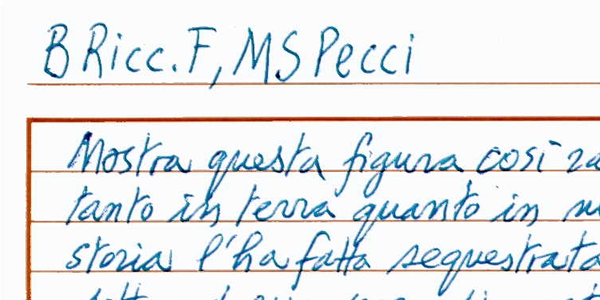 B Ricc. F, MS Pecci
Mostra questa figura così
tanto in terra quanto in
storia l'ha fatta sequestrata